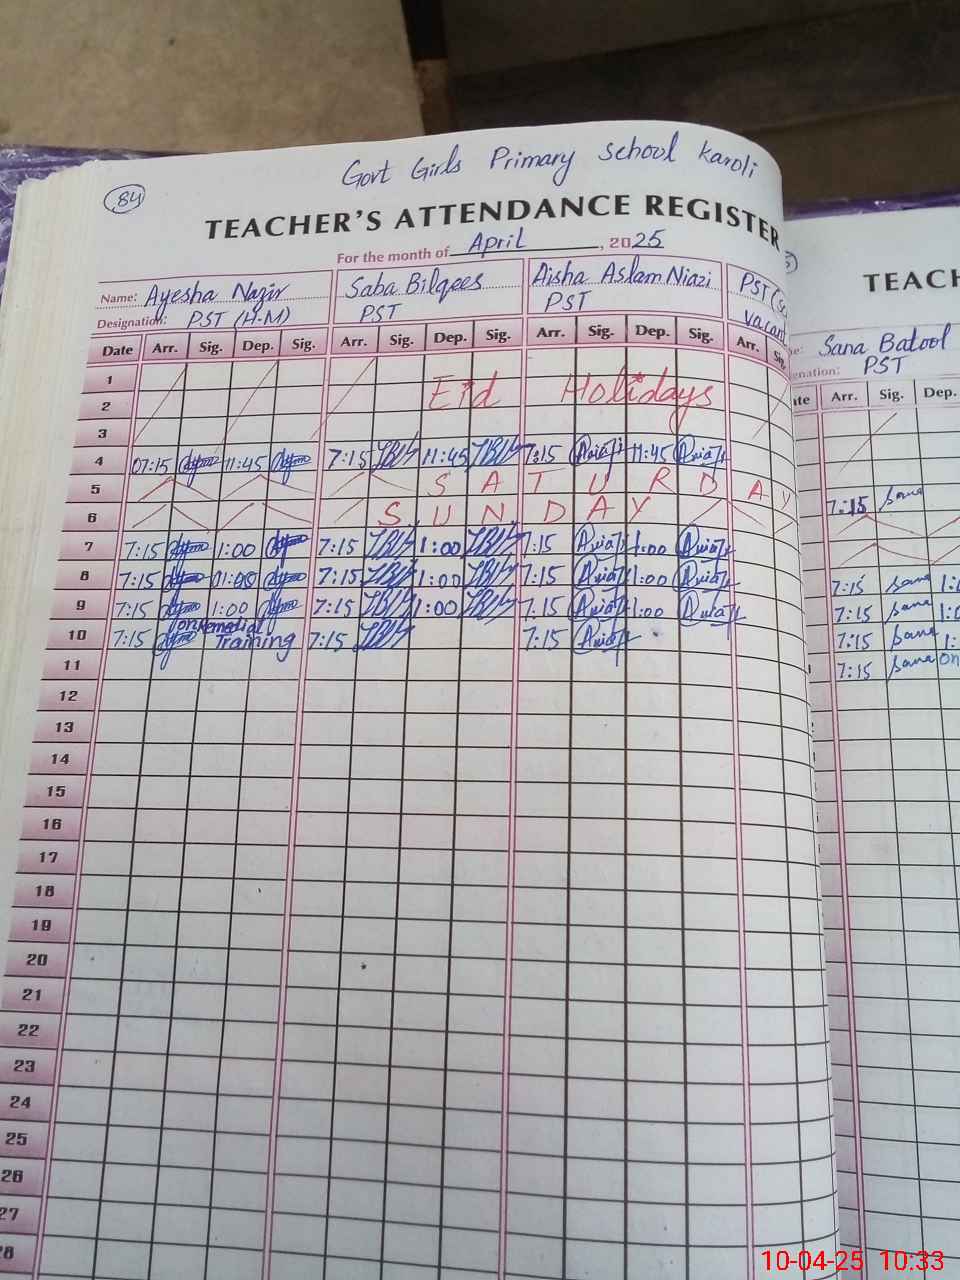 84
Govt Girls Primary school Karoli
TEACHER'S ATTENDANCE REGISTER
For the month of April, 2025
Name: Ayesha Nazir Saba Bilqees Aisha Aslam Niazi PST
Designation: PST (H-M) PST PST vacant
Date Arr. Sig. Dep. Sig. Arr. Sig. Dep. Sig. Arr. Sig. Dep. Sig. Arr.
1 Eid Holidays
2
3
4 07:15 11:45 7:15 11:45 7:15 11:45
5 S A T U R D A Y
6 S U N D A Y
7 7:15 1:00 7:15 1:00 7:15 1:00
8 7:15 7:15 1:00 7:15 1:00
9 7:15 1:00 7:15 1:00 7:15 1:00
10 7:15 Training 7:15 7:15
11
12
13
14
15
16
17
18
19
20
21
22
23
24
25
26
27
28
TEACH
Sana Batool
PST
Arr. Sig. Dep.
7:15 Sana
7:15 Sana
7:15 Sana
7:15 Sana
7:15 Sana on
10-04-25 10:33